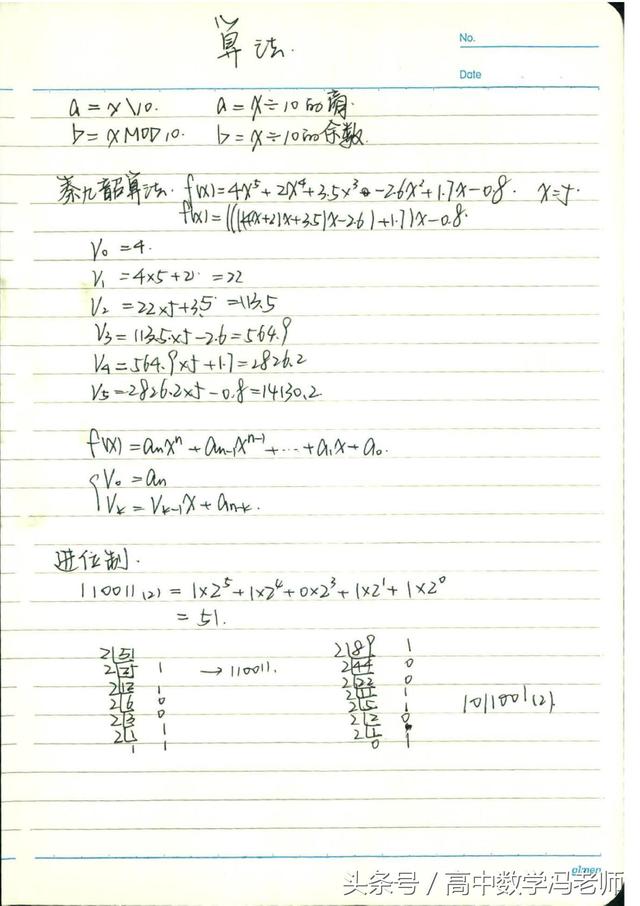 算法.
No.
Date
a = x \ 10. a = x ÷ 10 的商.
b = x MOD 10. b = x ÷ 10 的余数.
秦九韶算法. f(x) = 4x⁵ + 2x⁴ + 3.5x³ - 2.6x² + 1.7x - 0.8. x = 5.
f(x) = ((((4x+2)x+3.5)x-2.6)+1.7)x-0.8.
V₀ = 4.
V₁ = 4×5+2 = 22
V₂ = 22×5+3.5 = 113.5
V₃ = 113.5×5-2.6 = 564.9
V₄ = 564.9×5+1.7 = 2826.2
V₅ = 2826.2×5-0.8 = 14130.2
f(x) = aₙxⁿ + aₙ₋₁xⁿ⁻¹ + ... + a₁x + a₀.
V₀ = aₙ
Vₖ = Vₖ₋₁x + aₙ₋ₖ.
进位制.
110011(2) = 1×2⁵ + 1×2⁴ + 0×2³ + 1×2¹ + 1×2⁰
= 51.
2 51
2 25 1 → 110011.
2 12 1
2 6 0
2 3 0
2 1 1
1
2 89 1
2 44 0
2 22 0
2 11 1
2 5 1
2 2 0
2 1 1
0
1011001(2)
olmen
头条号 / 高中数学冯老师